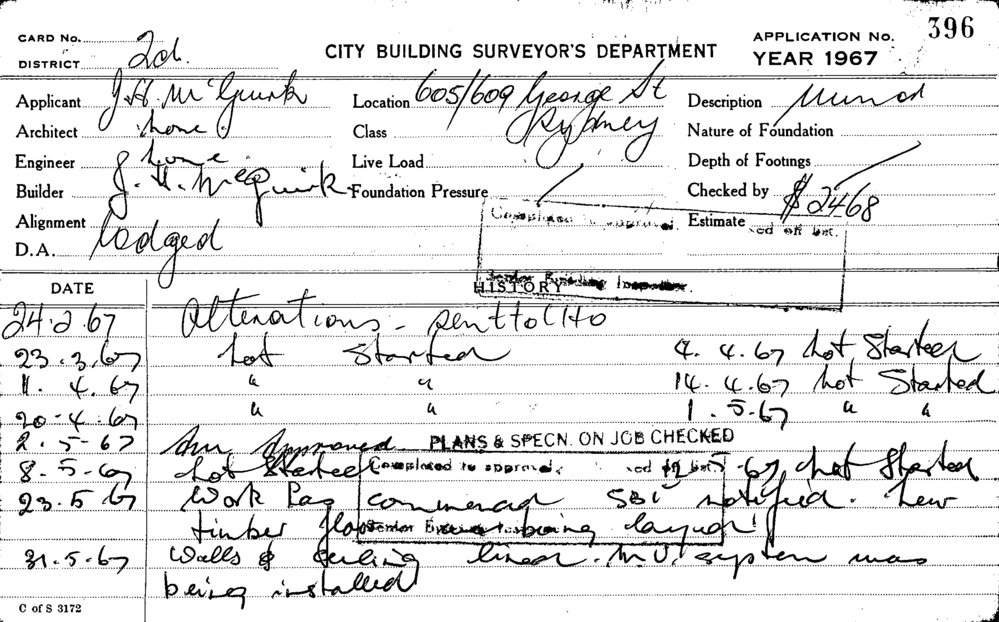 CARD No.
DISTRICT 2d.
CITY BUILDING SURVEYOR'S DEPARTMENT
APPLICATION No. 396
YEAR 1967
Applicant J. H. McGuirk
Location 605/609 George St Sydney
Description Minor
Architect none.
Class
Nature of Foundation
Engineer none.
Live Load
Depth of Footings
Builder J. H. McGuirk
Foundation Pressure
Checked by
Alignment
Estimate $2468
D.A. lodged
Completed to approval.
Senior Building Inspector.
HISTORY
DATE
24.2.67 Alterations - sent to CHO
23.3.67 Not Started 4.4.67 Not Started
11.4.67 " " 14.4.67 Not Started
20.4.67 " " 1.5.67 " "
2.5.67 Approved PLANS & SPECN. ON JOB CHECKED
8.5.67 Not Started 5.67 Not Started
Completed to approval.
23.5.67 Work has commenced SBI notified. New
timber floor being layed!
Senior
31.5.67 Walls & ceiling lined. M.V. system was
being installed
C of S 3172